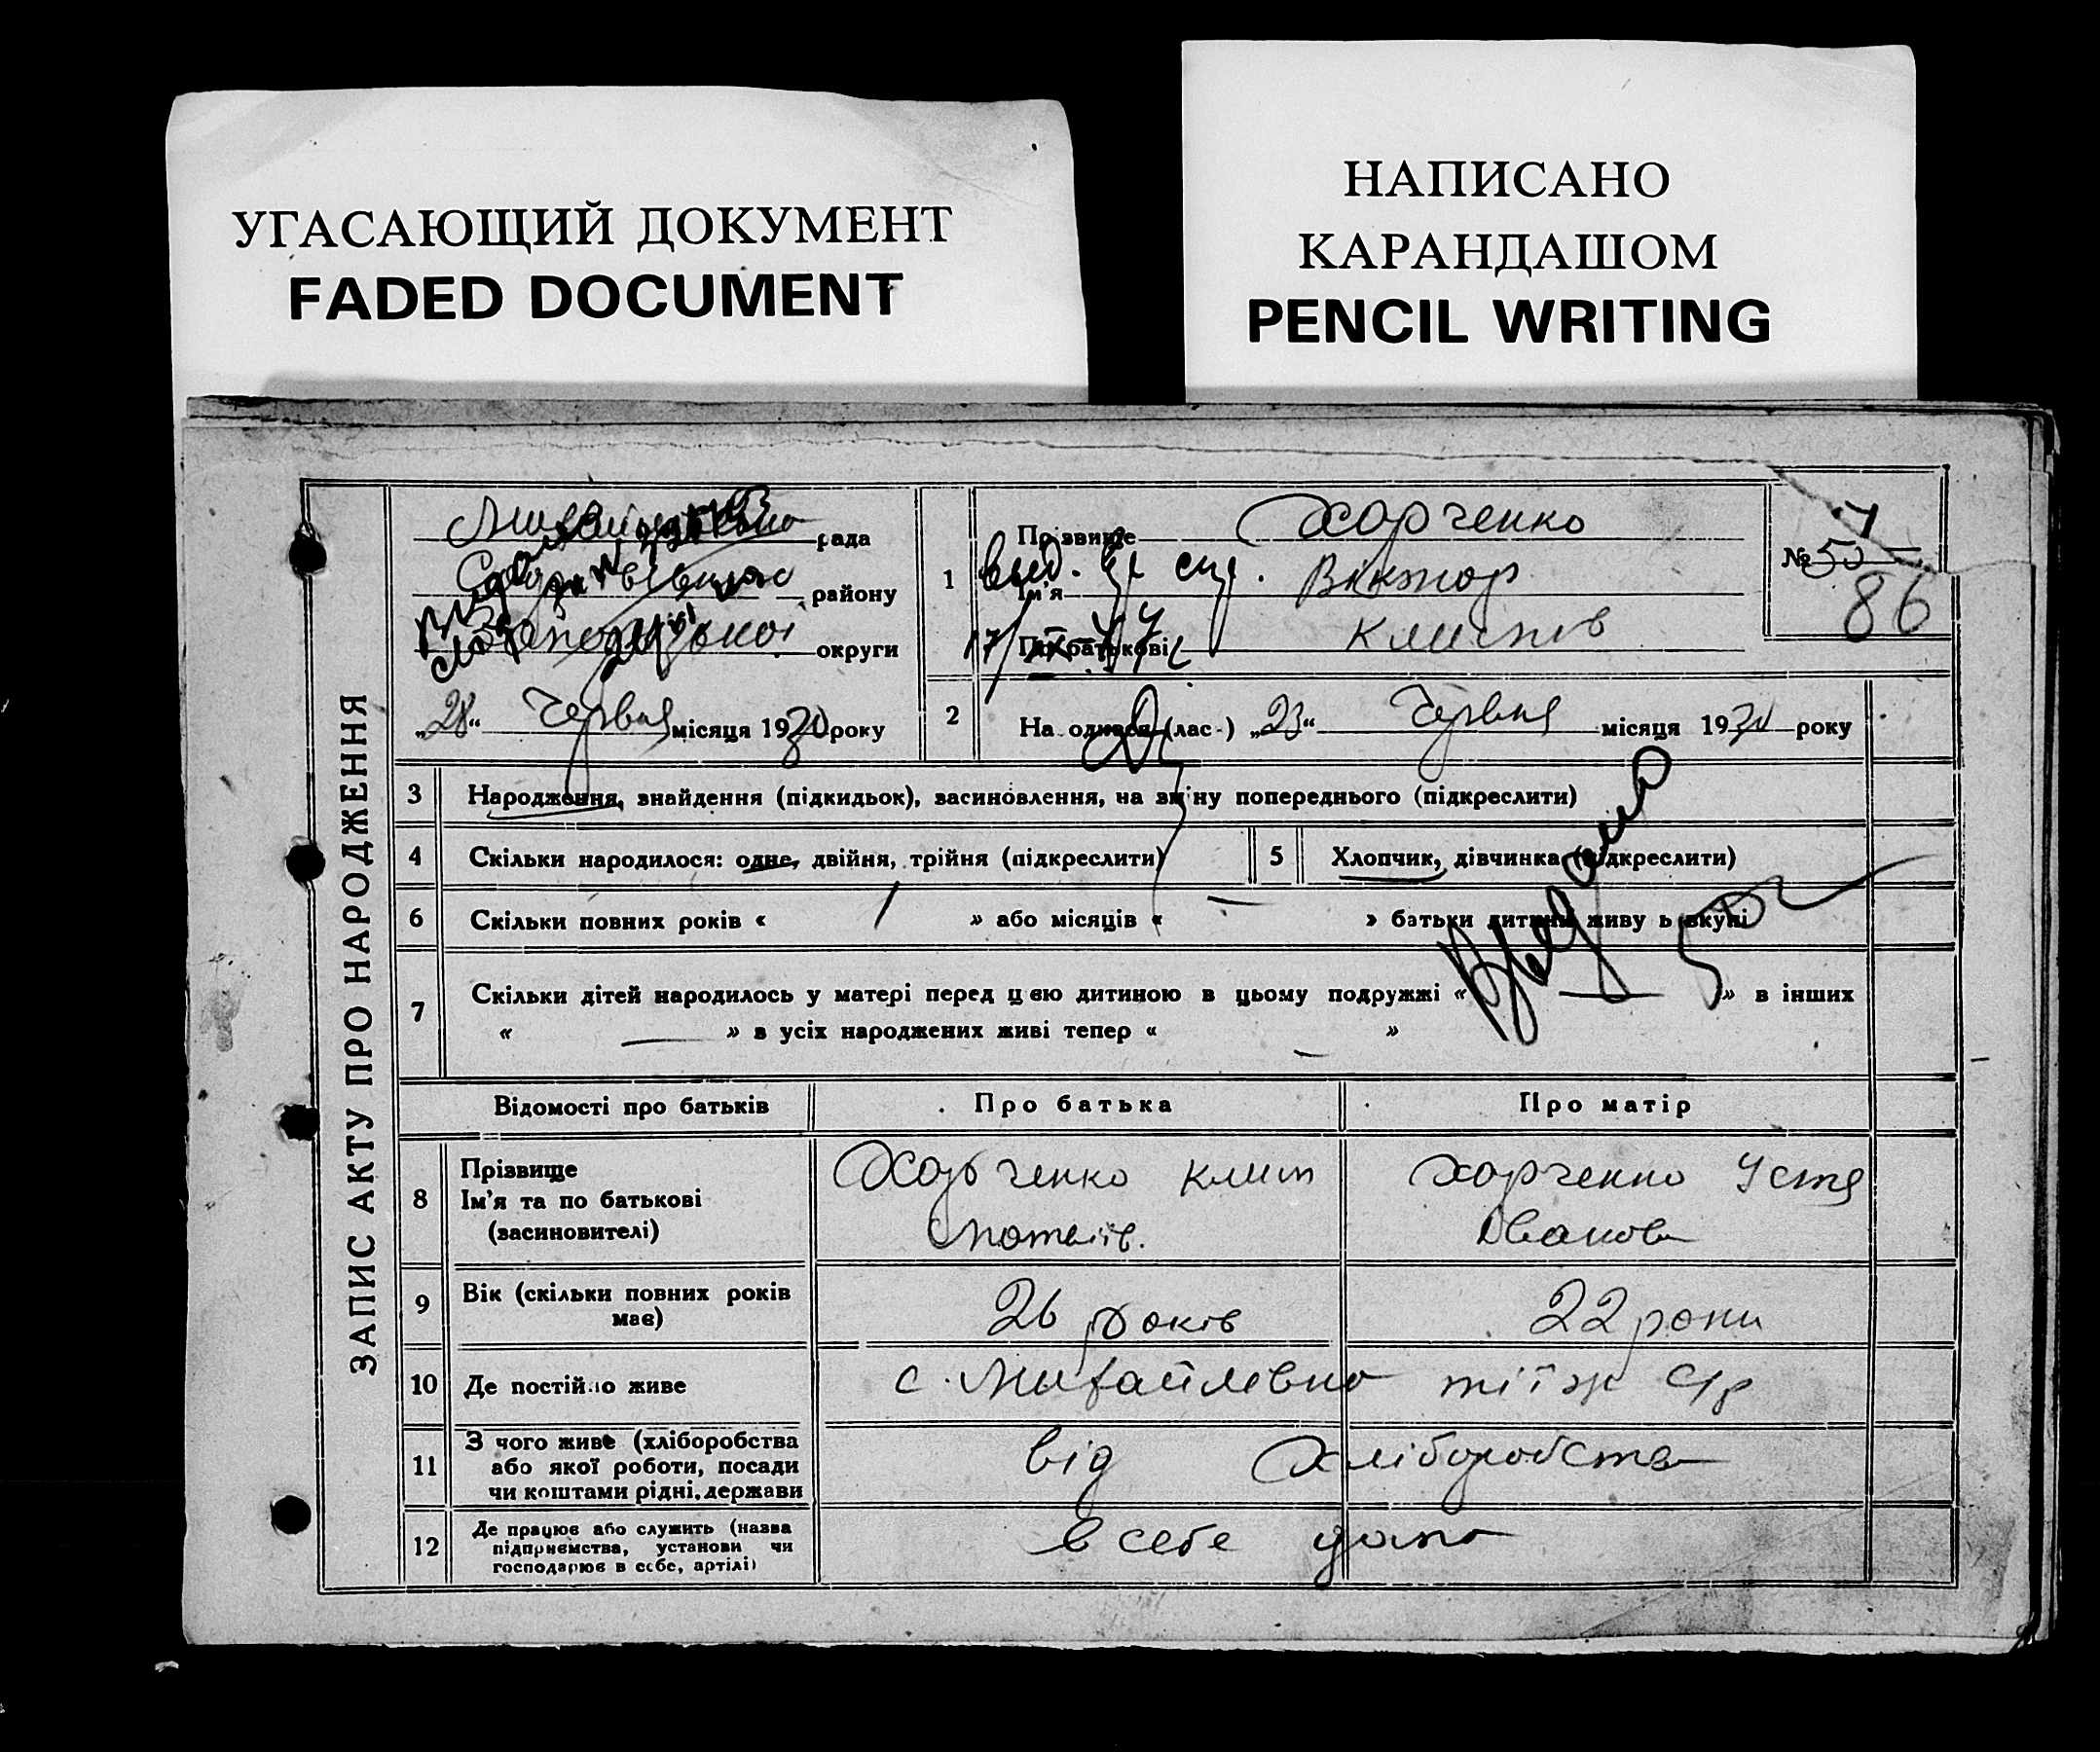 УГАСАЮЩИЙ ДОКУМЕНТ
FADED DOCUMENT
НАПИСАНО
КАРАНДАШОМ
PENCIL WRITING
ЗАПИС АКТУ ПРО НАРОДЖЕННЯ
рада
району
округи
„28“ Червня місяця 1930 року
1
Прізвище Харченко
Ім'я Віктор
По батькові Климів
№ 50
86
2 На однася (лас-) „23“ Червня місяця 1930 року
3 Народження, знайдення (підкидьок), засиновлення, на зміну попереднього (підкреслити)
4 Скільки народилося: одне, двійня, трійня (підкреслити) 5 Хлопчик, дівчинка (підкреслити)
6 Скільки повних років « 1 » або місяців « — » батьки дитини живуть вкупі
7 Скільки дітей народилось у матері перед цею дитиною в цьому подружжі « — » в інших
« — » в усіх народжених живі тепер « — »
Відомості про батьків Про батька Про матір
8 Прізвище
Ім'я та по батькові
(засиновителі)
Харченко Клим
Харченко Устя
Іванов
9 Вік (скільки повних років
має)
26 років 22 роки
10 Де постійно живе с. Михайлівка
11 З чого живе (хліборобства
або якої роботи, посади
чи коштами рідні, держави
від хліборобства
12 Де працює або служить (назва
підприємства, установи чи
господарює в себе, артілі)
в себе дома